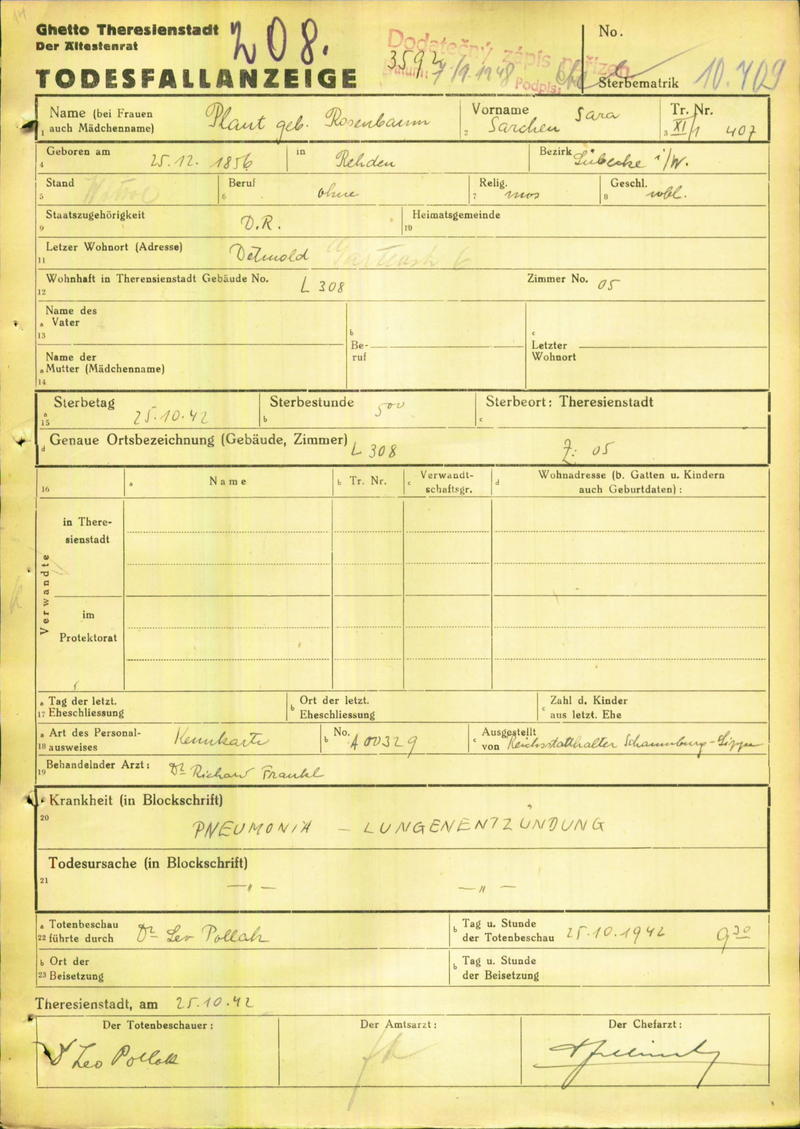 Ghetto Theresienstadt
Der Ältestenrat
208.
3592
Dodatečný zápis nařízen
Datum: 7/9.1948 Podpis:
No.
TODESFALLANZEIGE
Sterbematrik 10.409
Name (bei Frauen auch Mädchenname) Plaut geb. Rosenbaum
Vorname Sara Sarchen
Tr. Nr. XI/1 407
1 2 3
Geboren am 25.12. 1856 in Rehden Bezirk Lübecke i/W.
4
Stand Beruf ohne Relig. mos Geschl. wbl.
5 6 7 8
Staatszugehörigkeit D.R. Heimatsgemeinde
9 10
Letzer Wohnort (Adresse) Detmold
11
Wohnhaft in Therensienstadt Gebäude No. L 308 Zimmer No. 05
12
Name des Vater
a 13
b Beruf
c Letzter Wohnort
Name der Mutter (Mädchenname)
a 14
Sterbetag 25.10.42 Sterbestunde 500 Sterbeort: Theresienstadt
a 15 b c
d Genaue Ortsbezeichnung (Gebäude, Zimmer) L 308 Z: 05
16 a Name b Tr. Nr. c Verwandtschaftsgr. d Wohnadresse (b. Gatten u. Kindern auch Geburtdaten) :
Verwandte
in Theresienstadt
im Protektorat
a Tag der letzt. b Ort der letzt. c Zahl d. Kinder
17 Eheschliessung Eheschliessung aus letzt. Ehe
a Art des Personal- Kennkarte b No. A 00329 c Ausgestellt
18 ausweises von Reichsstatthalter Schaumburg-Lippe
Behandelnder Arzt: Dr Richard Frankl
19
Krankheit (in Blockschrift)
20 PNEUMONIA – LUNGENENTZÜNDUNG
Todesursache (in Blockschrift)
21 —〃— —〃—
a Totenbeschau b Tag u. Stunde
22 führte durch Dr Leo Pollak der Totenbeschau 25.10.1942 930
b Ort der b Tag u. Stunde
23 Beisetzung der Beisetzung
Theresienstadt, am 25.10.42
Der Totenbeschauer: Der Amtsarzt: Der Chefarzt:
Dr Leo Pollak